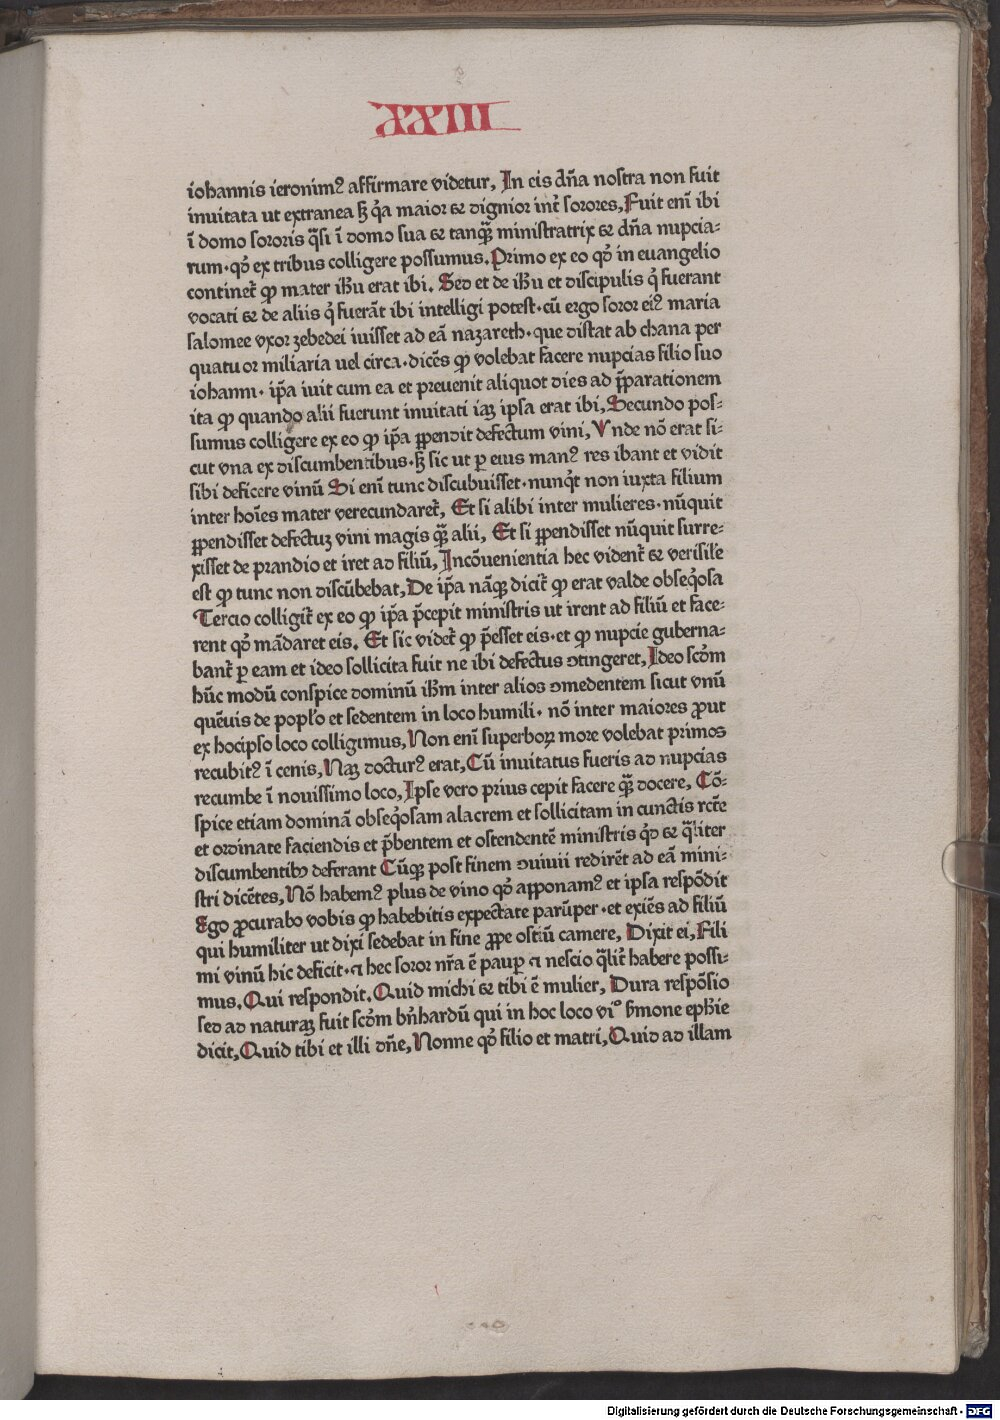 XXIII
iohannis ieronimꝰ affirmare videtur, In eis dn̄a nostra non fuit
inuitata ut extranea sꝫ qͣ maior ⁊ dignior int͛ sorores, Fuit eni̅ ibi
i̅ domo sororis qͣsi i̅ domo sua ⁊ tanqꝫ ministratrix ⁊ dn̄a nupcia⸗
rum· qd̛ ex tribus colligere possumus. Primo ex eo qd̛ in euangelio
continet͛ ꝙ mater ih̅u erat ibi. Sed et de ih̅u et discipulis q̛ fuerant
vocati ⁊ de aliis q̛ fuera̅t ibi intelligi potest· cu̅ ergo soror eiꝰ maria
salomee vxor zebedei iuisset ad ea̅ nazareth· que distat ab chana per
quatuor miliaria uel circa· dice̅s ꝙ volebat facere nupcias filio suo
iohanni· ip̅a iuit cum ea et preuenit aliquot dies ad p̅parationem
ita ꝙ quando alii fuerunt inuitati iaꝫ ipsa erat ibi, Secundo pos⸗
sumus colligere ex eo ꝙ ip̅a ꝑpendit defectum vini, Vnde no̅ erat si⸗
cut vna ex discumbentibus· sꝫ sic ut ꝑ eius manꝰ res ibant et vidit
sibi deficere vinu̅ Si eni̅ tunc discubuisset· nunqͥt non iuxta filium
inter ho̅i̅es mater verecundaret͛, Et si alibi inter mulieres· nu̅quit
ꝑpendisset defectuꝫ vini magis qꝫ alii, Et si ꝑpendisset nu̅quit surre⸗
xisset de prandio et iret ad filiu̅, Inco̅uenientia hec vident͛ ⁊ verisil̛e
est ꝙ tunc non discu̅bebat, De ip̅a na̅qꝫ dicit͛ ꝙ erat valde obseq̛osa
Tercio colligit͛ ex eo ꝙ ip̅a p̅cepit ministris ut irent ad filiu̅ et face⸗
rent qd̛ ma̅daret eis. Et sic videt͛ ꝙ p̅esset eis· et ꝙ nupcie guberna⸗
bant͛ ꝑ eam et ideo sollicita fuit ne ibi defectus ↄtingeret, Ideo scd̅m
hu̅c modu̅ conspice dominu̅ ih̅m inter alios ↄmedentem sicut vnu̅
que̅uis de popl̛o et sedentem in loco humili· no̅ inter maiores ꝓut
ex hocipso loco colligimus, Non eni̅ superboꝝ more volebat primos
recubitꝰ i̅ cenis, Naꝫ docturꝰ erat, Cu̅ inuitatus fueris ad nupcias
recumbe i̅ nouissimo loco, Ipse vero prius cepit facere qꝫ docere, Co̅⸗
spice etiam domina̅ obseq̛osam alacrem et sollicitam in cunctis rct̅e
et ordinate faciendis et p̅bentem et ostendente̅ ministris qd̛ ⁊ qͣliter
discumbentibꝰ deferant Cu̅qꝫ post finem ↄuiuii redire̅t ad ea̅ mini⸗
stri dice̅tes, No̅ habemꝰ plus de vino qd̛ apponamꝰ et ipsa respo̅dit
Ego ꝓcurabo vobis ꝙ habebitis expectate paru̅per· et exie̅s ad filiu̅
qui humiliter ut dixi sedebat in fine ꝓpe ostiu̅ camere, Dixit ei, Fili
mi vinu̅ hic deficit· ⁊ hec soror nr̅a e̅ pauꝑ ⁊ nescio qͣlit͛ habere possi⸗
mus. Qui respondit. Quid michi ⁊ tibi e̅ mulier, Dura respo̅sio
sed ad naturaꝫ fuit scd̅m bn̅hardu̅ qui in hoc loco viͦ s̛mone eph̅ie
dicit, Quid tibi et illi dn̅e, Nonne qd̛ filio et matri, Quid ad illam
Digitalisierung gefördert durch die Deutsche Forschungsgemeinschaft - DFG